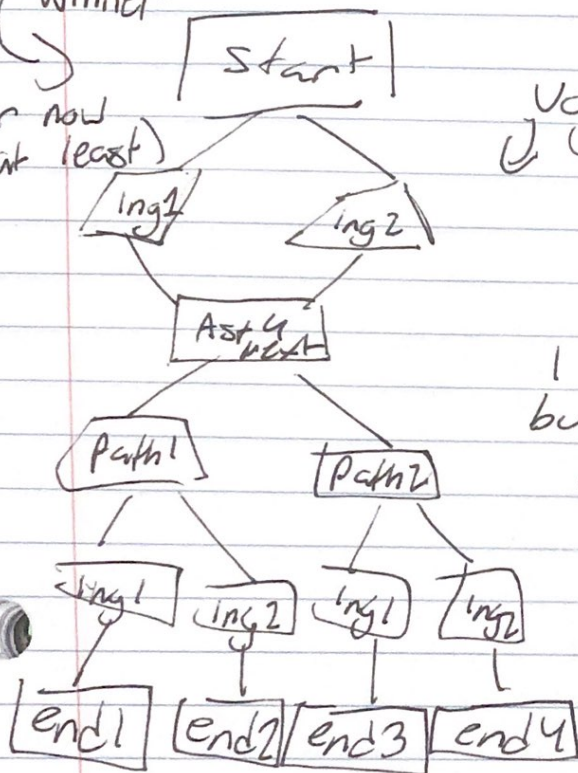 Start
r now
at least)
ing1
ing2
next
Path1
Path2
ing1
ing2
ing1
ing2
bu
end1
end2
end3
end4